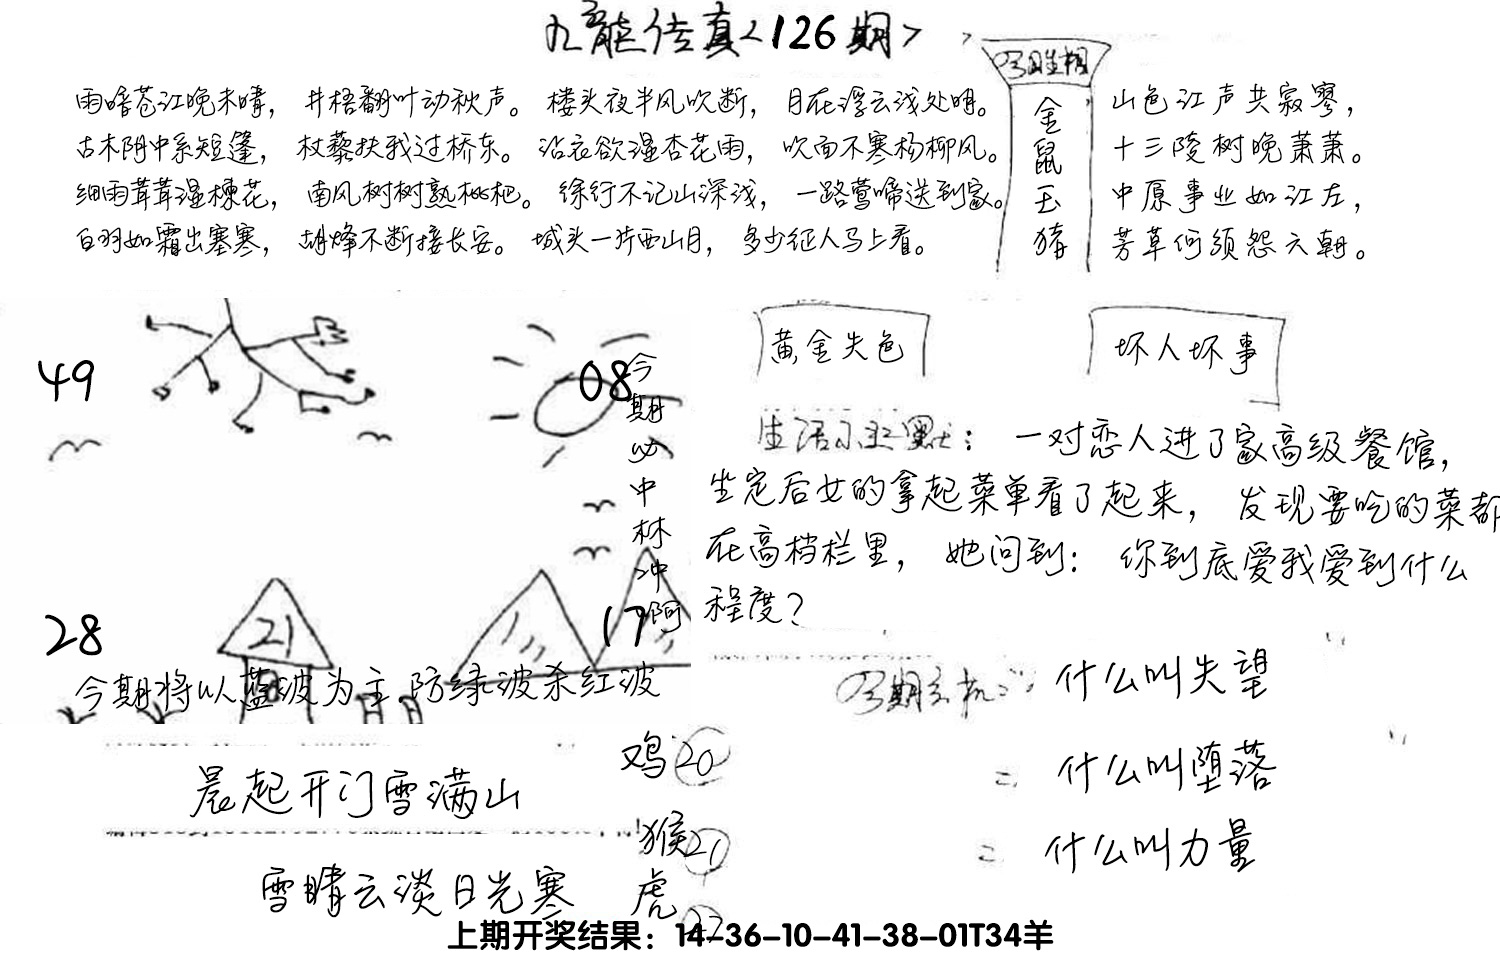 九龍传真<126期>
雨暗苍江晚未晴，井梧翻叶动秋声。楼头夜半风吹断，月在浮云浅处明。
古木阴中系短篷，杖藜扶我过桥东。沾衣欲湿杏花雨，吹面不寒杨柳风。
细雨茸茸湿楝花，南风树树熟枇杷。徐行不记山深浅，一路莺啼送到家。
白羽如霜出塞寒，胡烽不断接长安。城头一片西山月，多少征人马上看。
金鼠玉猪
山色江声共寂寥，
十三陵树晚萧萧。
中原事业如江左，
芳草何须怨六朝。
49
08
28
21
17
今期必中林冲阿
今期将以蓝波为主.防绿波杀红波
黄金失色
坏人坏事
生活幽默：一对恋人进了家高级餐馆，
坐定后女的拿起菜单看了起来，发现要吃的菜都
在高档栏里，她问到：你到底爱我爱到什么
程度？
什么叫失望
二 什么叫堕落
二 什么叫力量
晨起开门雪满山
雪晴云淡日光寒
鸡20
猴21
虎
上期开奖结果：14-36-10-41-38-01T34羊